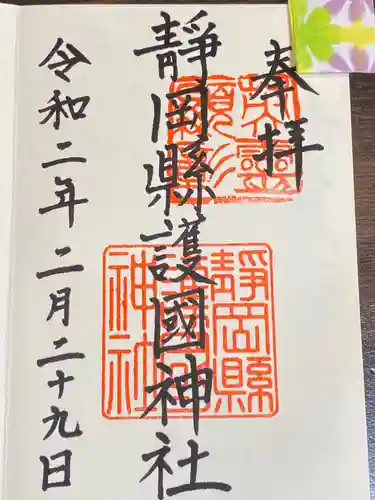 奉拝
靜岡縣護國神社
令和二年二月二十九日
靜岡縣
護國
神社